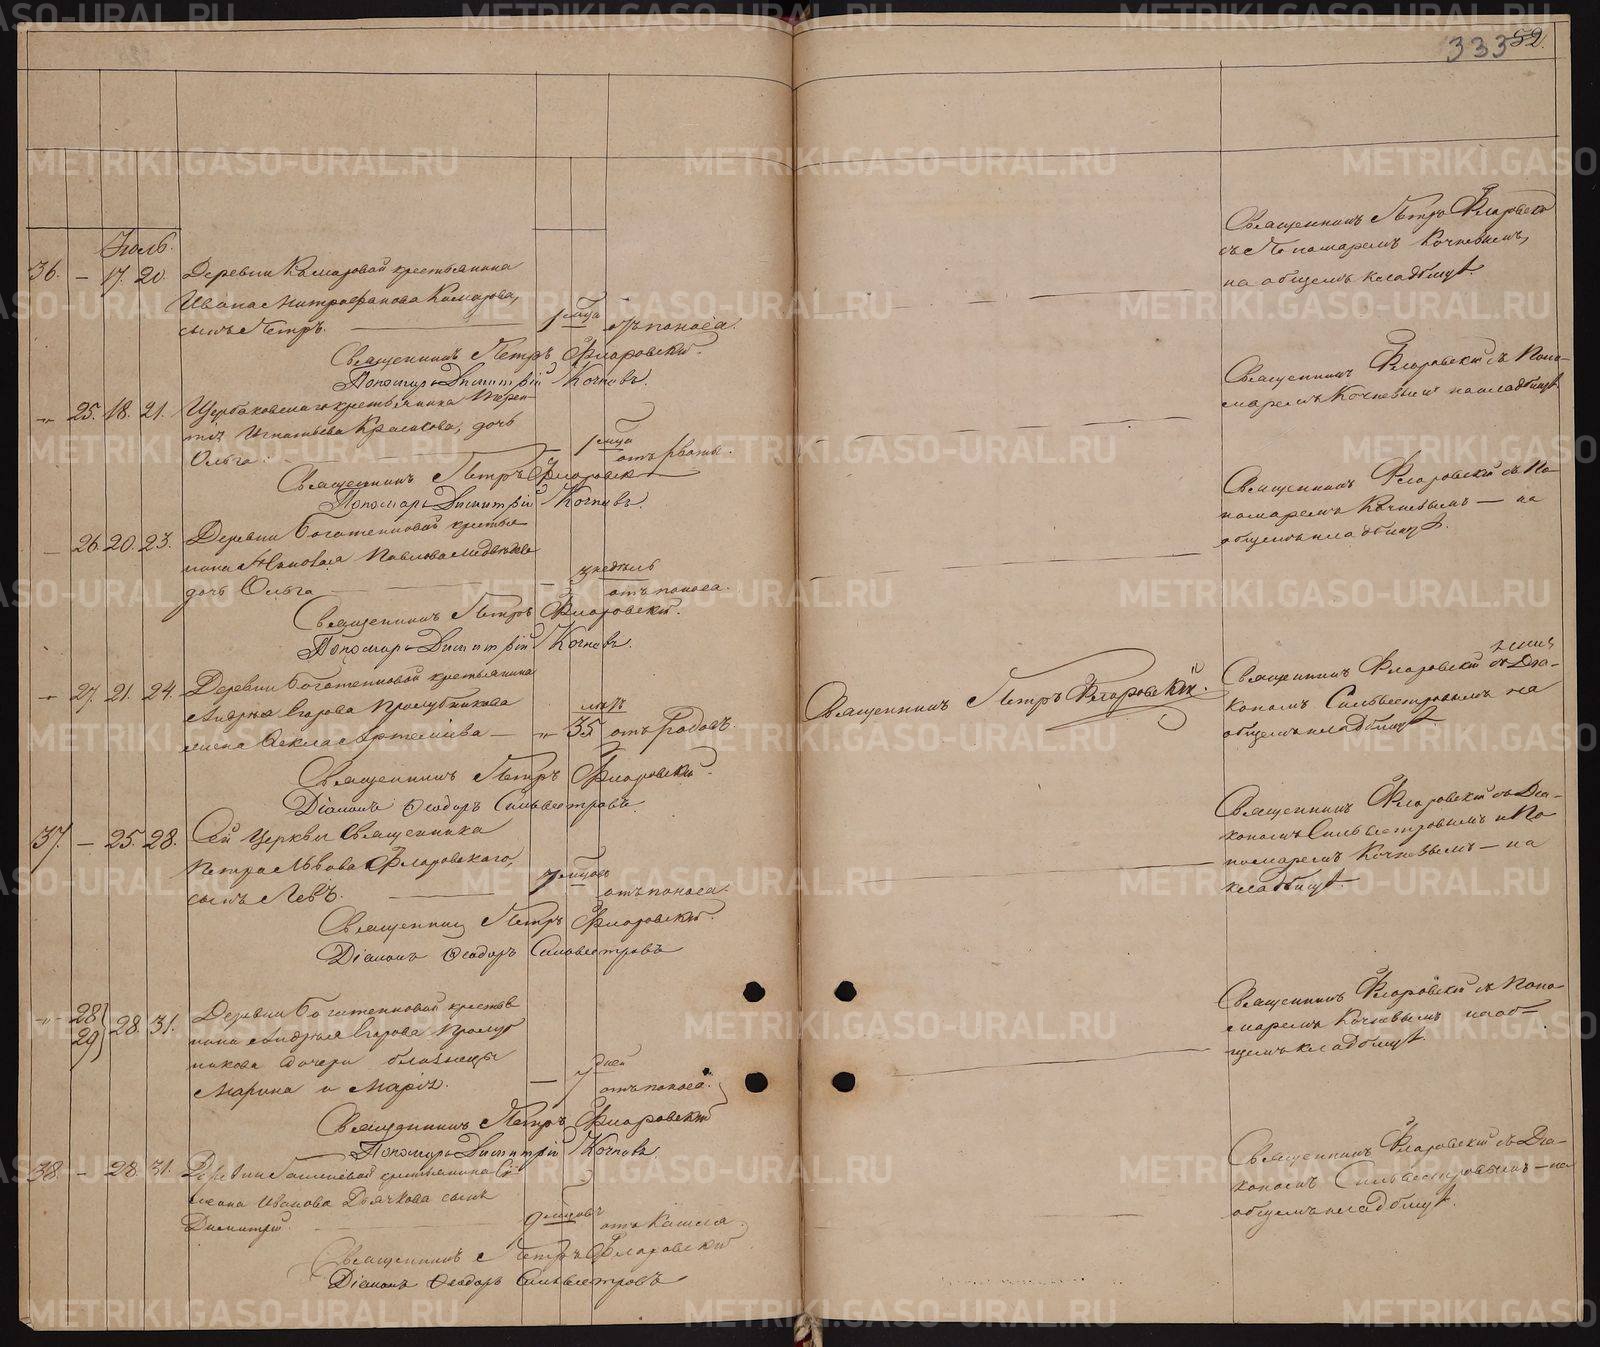 333 52.
Іюль.
36. — 17. 20. Деревни Комаровой крестьянина
Ивана Митрофанова Комарова,
сынъ Петръ. 1 мѣсца отъ поноса.
Священникъ Петръ Флоровскій.
Пономарь Димитрій Кочневъ.
Священникъ Петръ Флоровскій
съ Пономаремъ Кочневымъ,
на общемъ кладбищѣ.
" 25. 18. 21. Щербаковскаго крестьянина Терен-
тія Игнатьева Красикова, дочь
Ольга. 1 мѣсца отъ рвоты.
Священникъ Петръ Флоровскій
Пономарь Димитрій Кочневъ.
Священникъ Флоровскій съ Поно-
маремъ Кочневымъ на кладбищѣ.
— 26. 20. 23. Деревни Богатенковой крестья
нина Павлова Медвѣдева
дочь Ольга 3 недѣль
отъ поноса.
Священникъ Петръ Флоровскій.
Пономарь Димитрій Кочневъ.
Священникъ Флоровскій съ По-
номаремъ Кочневымъ — на
общемъ кладбищѣ.
" 27. 21. 24. Деревни Богатенковой крестьянина
Андрея Егорова
жена Артеміева — " 35 лѣтъ отъ Родовъ.
Священникъ Петръ Флоровскій.
Діаконъ Ѳеодоръ Сильвестровъ
Священникъ Петръ Флоровскій.
Священникъ Флоровскій съ Діа-
кономъ Сильвестровымъ на
общемъ кладбищѣ
37. — 25. 28. Сей Церкви Священника
Петра Львова Флоровскаго,
сынъ Левъ. 7 мѣсцовъ
отъ поноса.
Священникъ Петръ Флоровскій.
Діаконъ Ѳеодоръ Сильвестровъ
Священникъ Флоровскій съ Діа-
кономъ Сильвестровымъ и По
номаремъ Кочневымъ — на
кладбищѣ.
" 28 29 28. 31. Деревни Богатенковой крестья
нина Андрея Егорова
дочери близнецы
Марина и Марія. — 7 дней
отъ поноса.
Священникъ Петръ Флоровскій
Пономарь Димитрій Кочневъ.
Священникъ Флоровскій съ Поно-
маремъ Кочневымъ на об-
щемъ кладбищѣ.
38. — 28. 31. Деревни крестьянина Се
мена Иванова Дьячкова сынъ
Димитрій. 9 мѣсцовъ отъ Кашля
Священникъ Петръ Флоровскій
Діаконъ Ѳеодоръ Сильвестровъ
Священникъ Флоровскій съ Діа-
кономъ Сильвестровымъ — на
общемъ кладбищѣ.
METRIKI.GASO-URAL.RU